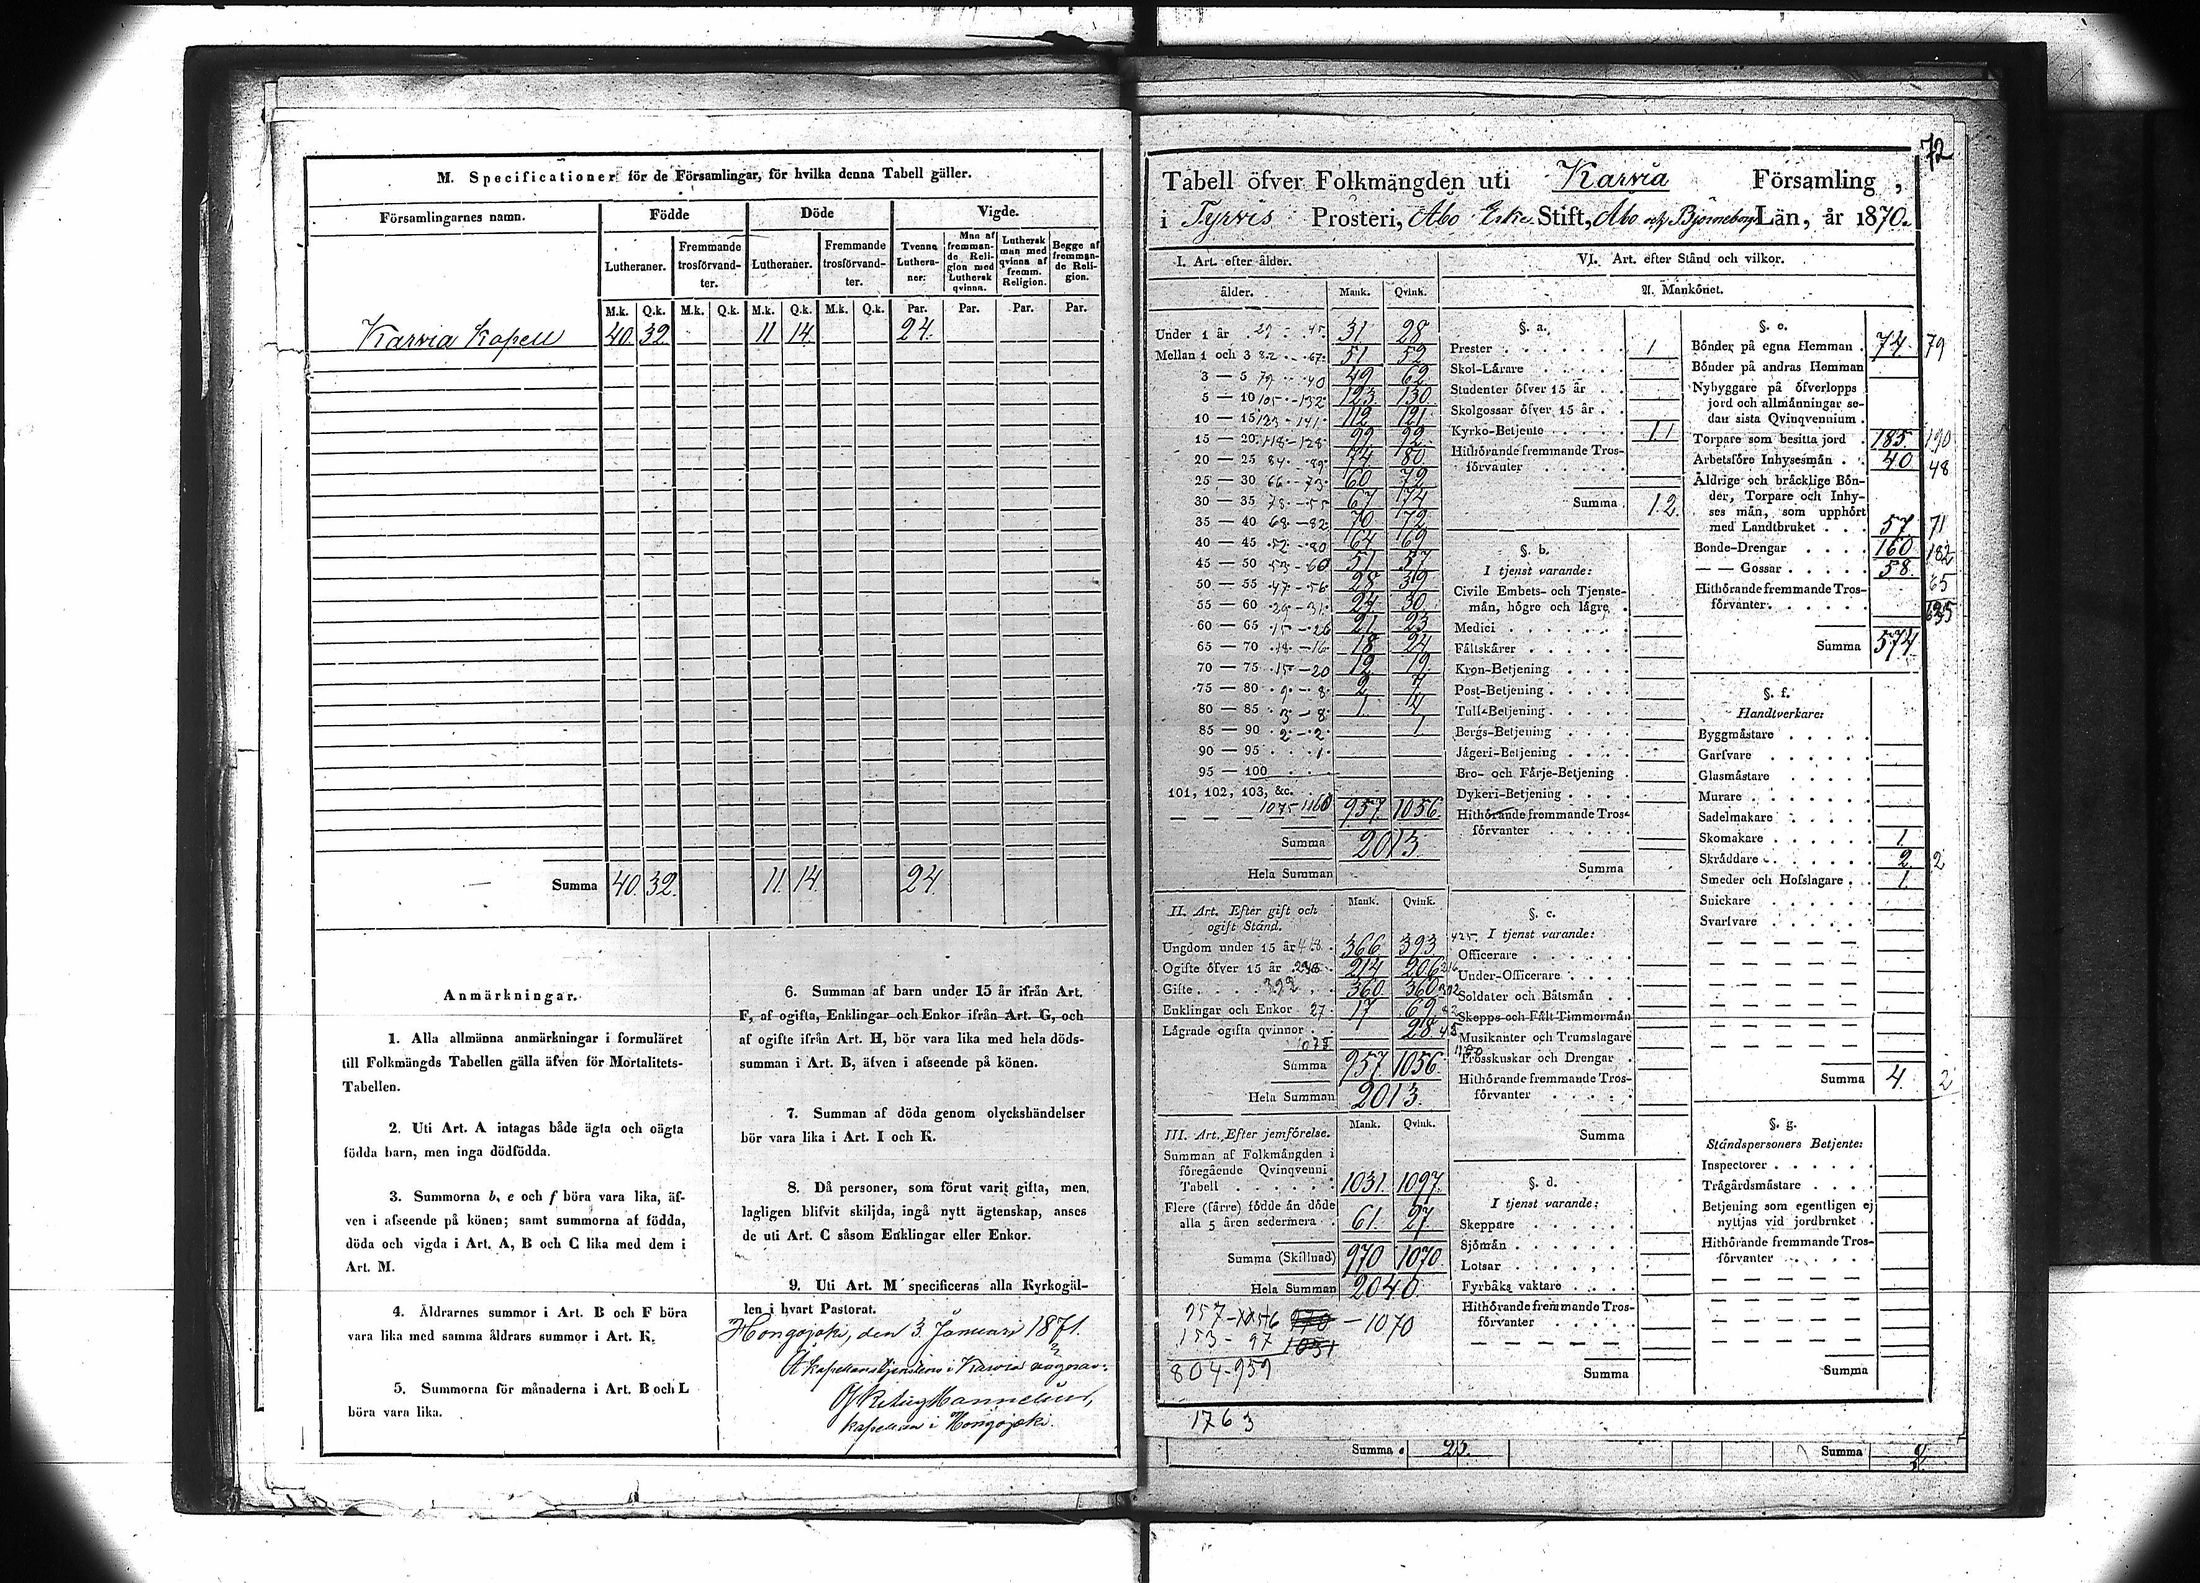 M. Specificationer för de Församlingar, för hvilka denna Tabell gäller.
Församlingarnes namn. Födde Döde Vigde.
Lutheraner. Fremmande trosförvandter. Lutheraner. Fremmande trosförvandter. Tvenne Lutheraner. Man af fremmande Religion med Luthersk qvinna. Luthersk man med qvinna af fremm. Religion. Begge af fremmande Religion.
M.k. Q.k. M.k. Q.k. M.k. Q.k. M.k. Q.k. Par. Par. Par. Par.
Karvia Kapell 40. 32. 11 14. 24.
Summa 40. 32. 11. 14. 24
Anmärkningar.
1. Alla allmänna anmärkningar i formuläret
till Folkmängds Tabellen gälla äfven för Mortalitets-
Tabellen.
2. Uti Art. A intagas både ägta och oägta
födda barn, men inga dödfödda.
3. Summorna b, e och f böra vara lika, äf-
ven i afseende på könen; samt summorna af födda,
döda och vigda i Art. A, B och C lika med dem i
Art. M.
4. Åldrarnes summor i Art. B och F böra
vara lika med samma åldrars summor i Art. K.
5. Summorna för månaderna i Art. B och L
böra vara lika.
6. Summan af barn under 15 år ifrån Art.
F, af ogifta, Enklingar och Enkor ifrån Art. G, och
af ogifte ifrån Art. H, bör vara lika med hela döds-
summan i Art. B, äfven i afseende på könen.
7. Summan af döda genom olyckshändelser
bör vara lika i Art. I och K.
8. Då personer, som förut varit gifta, men
lagligen blifvit skiljda, ingå nytt ägtenskap, anses
de uti Art. C såsom Enklingar eller Enkor.
9. Uti Art. M specificeras alla Kyrkogäl-
len i hvart Pastorat.
Hongojoki, den 3. Januari 1871.
kapellan i Hongojoki.
72
Tabell öfver Folkmängden uti Karvia Församling,
i Tyrvis Prosteri, Åbo Erke Stift, Åbo och Björneborgs Län, år 1870.
I. Art. efter ålder.
ålder. Mank. Qvink.
Under 1 år 31 28
Mellan 1 och 3 82 - 67 51 52
3 — 5 79 - 40 49 62
5 — 10 105 - 132 123 130
10 — 15 123 - 141 112 121
15 — 20 118 - 128 99 92
20 — 25 84 - 89 74 80
25 — 30 66 - 73 60 72
30 — 35 78 - 55 67 74
35 — 40 68 - 82 70 72
40 — 45 52 - 80 64 69
45 — 50 53 - 60 51 57
50 — 55 47 - 56 28 39
55 — 60 26 - 31 24 30
60 — 65 15 - 26 21 23
65 — 70 18 - 16 18 24
70 — 75 15 - 20 12 19
75 — 80 9 - 8 2 7
80 — 85 3 - 8 1 4
85 — 90 2 - 2 1
90 — 95 1
95 — 100
101, 102, 103, &c.
1075 1160 957 1056
Summa 2013
Hela Summan
II. Art. Efter gift och ogift Stånd. Mank. Qvink.
Ungdom under 15 år 366 393 425
Ogifte öfver 15 år 214 206
Gifte 392 360 360 392
Enklingar och Enkor 27 17 69
Lägrade ogifta qvinnor 28 45
Summa 957 1056
Hela Summan 2013.
III. Art. Efter jemförelse. Mank. Qvink.
Summan af Folkmängden i
föregående Qvinqvenni
Tabell 1031. 1097.
Flere (färre) födde än döde
alla 5 åren sedermera 61. 27.
Summa (Skillnad) 970 1070.
Hela Summan 2040.
957 - 1056 970 - 1070
153 - 97 1031
804 - 959
1763
VI. Art. efter Stånd och vilkor.
A. Mankönet.
§. a.
Prester 1
Skol-Lärare
Studenter öfver 15 år
Skolgossar öfver 15 år
Kyrko-Betjente 11
Hithörande fremmande Tros-
förvanter
Summa 12.
§. b.
I tjenst varande:
Civile Embets- och Tjenste-
män, högre och lägre
Medici
Fältskärer
Kron-Betjening
Post-Betjening
Tull-Betjening
Bergs-Betjening
Jägeri-Betjening
Bro- och Färje-Betjening
Dykeri-Betjening
Hithörande fremmande Tros-
förvanter
Summa
§. c.
I tjenst varande:
Officerare
Under-Officerare
Soldater och Båtsmän
Skepps och Fält Timmermän
Musikanter och Trumslagare
Trosskuskar och Drengar
Hithörande fremmande Tros-
förvanter
Summa
§. d.
I tjenst varande:
Skeppare
Sjömän
Lotsar
Fyrbåks vaktare
Hithörande fremmande Tros-
förvanter
Summa
§. e.
Bönder på egna Hemman 74 79
Bönder på andras Hemman
Nybyggare på öfverlopps
jord och allmänningar se-
dan sista Qvinqvennium
Torpare som besitta jord 185 190
Arbetsföre Inhysesmän 40 48
Åldrige och bräcklige Bön-
der, Torpare och Inhy-
ses män, som upphört
med Landtbruket 57 71
Bonde-Drengar 160 182
— — Gossar 58. 65
Hithörande fremmande Tros-
förvanter 635
Summa 574
§. f.
Handtverkare:
Byggmästare
Garfvare
Glasmästare
Murare
Sadelmakare
Skomakare 1.
Skräddare 2. 2
Smeder och Hofslagare 1.
Snickare
Svarfvare
Summa 4. 2
§. g.
Ståndspersoners Betjente:
Inspectorer
Trägårdsmästare
Betjening som egentligen ej
nyttjas vid jordbruket
Hithörande fremmande Tros-
förvanter
Summa
Summa 25. Summa